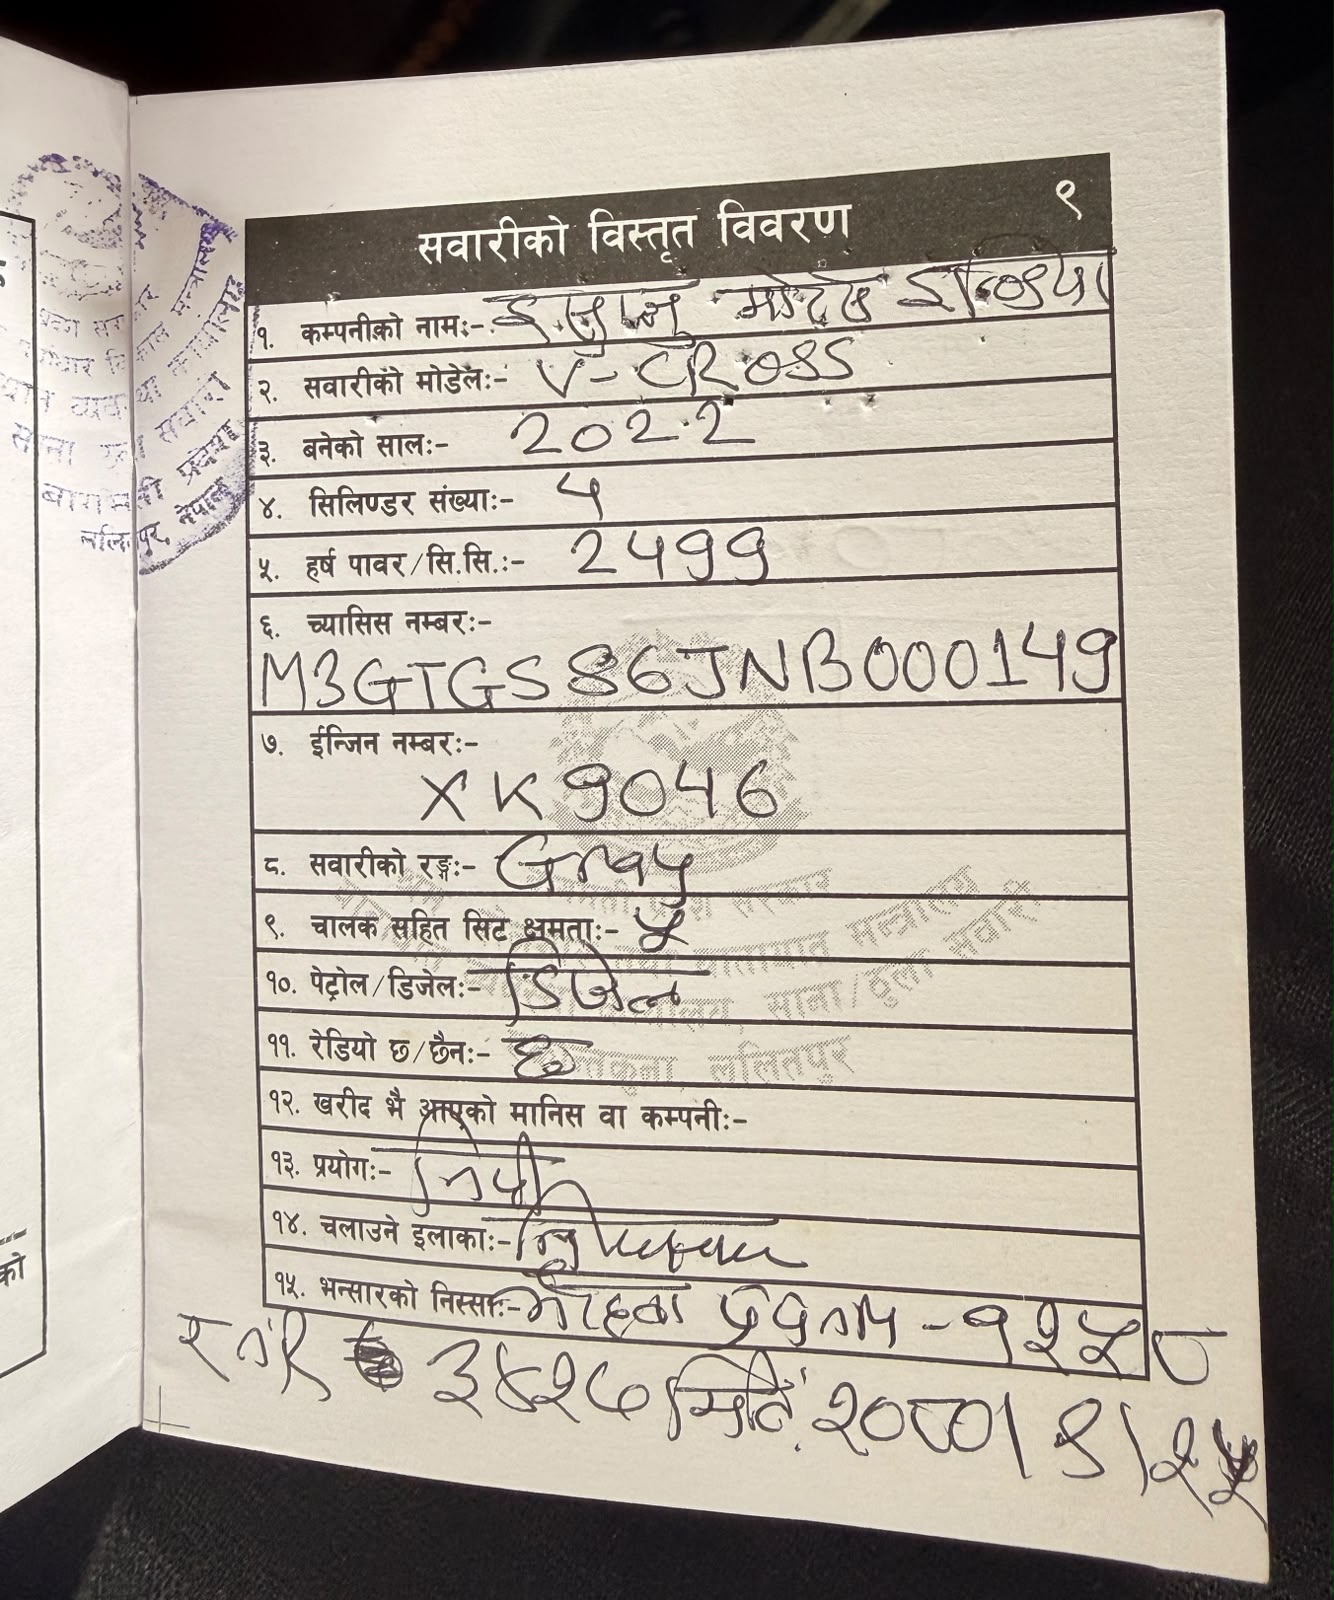 सवारीको विस्तृत विवरण ९
१. कम्पनीको नामः- इसुजु मोटर्स इन्डिया
२. सवारीको मोडेलः- V-CROSS
३. बनेको सालः- 2022
४. सिलिण्डर संख्याः- 4
५. हर्ष पावर/सि.सि.ः- 2499
६. च्यासिस नम्बरः-
M3GTGS86JNB000149
७. ईन्जिन नम्बरः-
XK9046
८. सवारीको रङ्गः- Gray
९. चालक सहित सिट क्षमताः- ५
१०. पेट्रोल/डिजेलः- डिजेल
११. रेडियो छ/छैनः- छ
१२. खरीद भै आएको मानिस वा कम्पनीः-
१३. प्रयोगः- निजी
१४. चलाउने इलाकाः-
१५. भन्सारको निस्साः- भैरहवा प्रपत्र - १२५८
मिति २०८०/९/२५
बागमती प्रदेश
ललितपुर, नेपाल